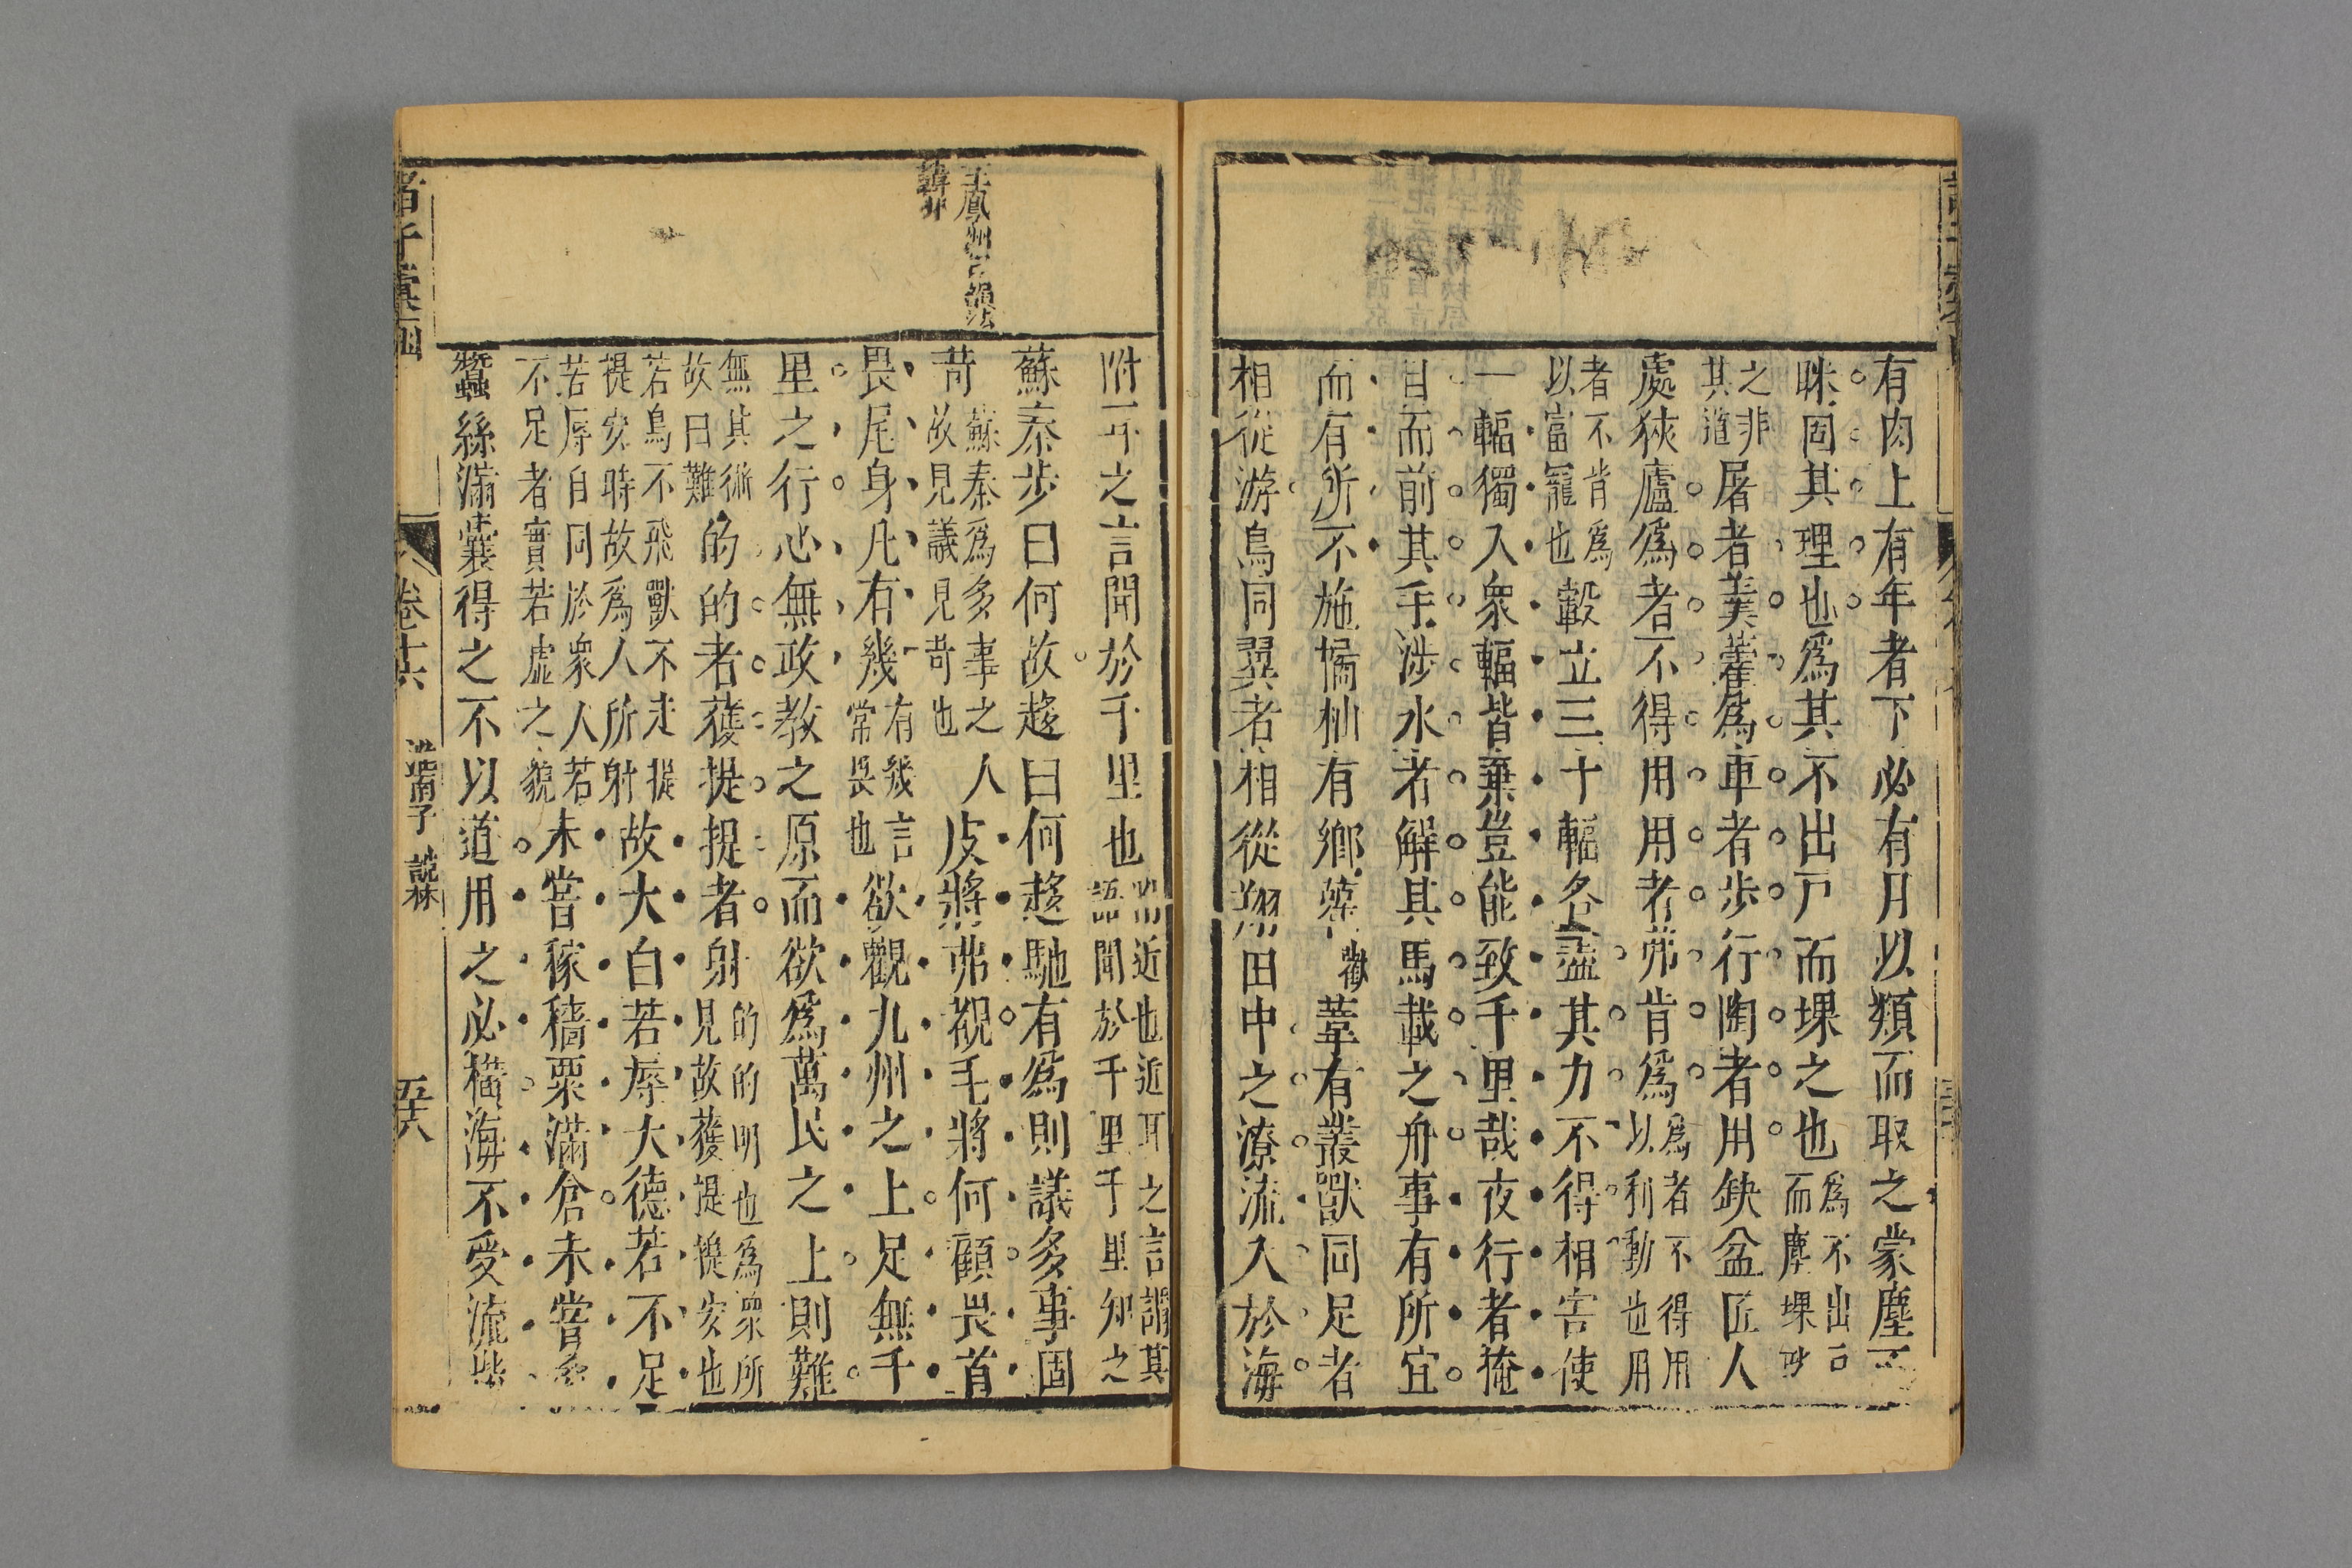 有肉上有年者下必有月以類而取之蒙塵而
眯固其理也爲其不出戸而堁之也爲不出戸而塵堁眇
之非其道屠者羹藿爲車者步行陶者用缺盆匠人
處狹廬爲者不得用用者弗肯爲爲者不得用以利動也用
者不肯爲以富寵也轂立三十輻各盡其力不得相害使
一輻獨入衆輻皆棄豈能致千里哉夜行者掩
目而前其手涉水者解其馬載之舟事有所宜
而有所不施橘柚有鄉雚葦有叢獸同足者
相從游鳥同翼者相從翔田中之潦流入於海
附耳之言聞於千里也附近也近耳之言謂其語聞於千里千里知之
蘇秦步曰何故趍曰何趍馳有爲則議多事固
苛蘇秦爲多事之人故見議見苛也皮將弗覩毛將何顧畏首
畏尾身凡有幾有幾言常畏也欲觀九州之上足無千
里之行心無政教之原而欲爲萬民之上則難
無其術故曰難的的者獲提提者射的的明也爲衆所見故獲提提安也
若鳥不飛獸不走提提安時故爲人所射故大白若辱大德若不足
若辱自同於衆人若不足者實若虛之貌未嘗稼穡粟滿倉未嘗桑
蠶絲滿囊得之不以道用之必橫海不受流胔
王鳳州曰韻法
韓非
諸子彙函
卷十六
淮南子 說林
五十六